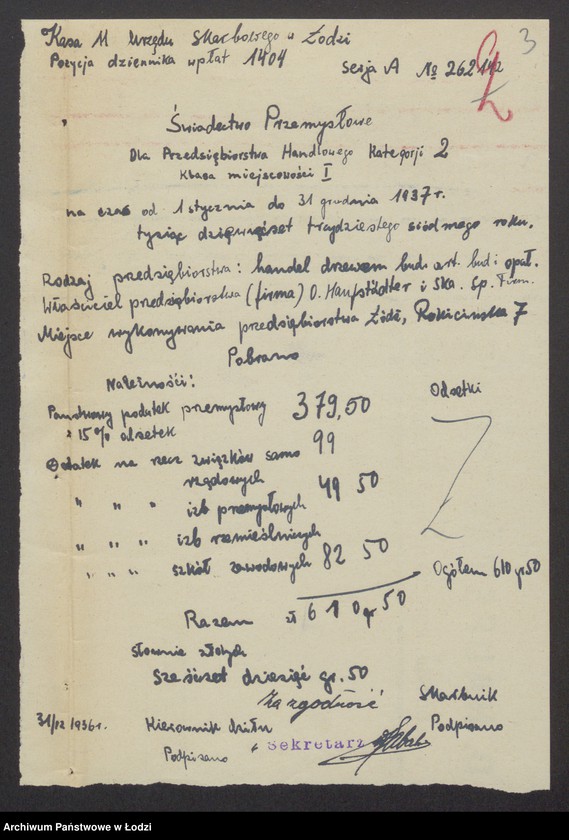 Kasa 11 Urzędu Skarbowego w Łodzi
Pozycja dziennika wpłat 1404
Serja A № 262142
3
2
Świadectwo Przemysłowe
Dla Przedsiębiorstwa Handlowego Kategorji 2
Klasa miejscowości I
na czas od 1 stycznia do 31 grudnia 1937 r.
tysiąc dziewięćset trzydziestego siódmego roku.
Rodzaj przedsiębiorstwa: handel drzewem bud. art. bud i opał.
Właściciel przedsiębiorstwa (firma) O. Hauptstädter i Ska. Sp. Firm.
Miejsce wykonywania przedsiębiorstwa Łódź, Rokicińska 7
Pobrano
Należności: Odsetki
Państwowy podatek przemysłowy 379,50
15% odsetek
Dodatek na rzecz związków samo 99
rządowych
" " " izb przemysłowych 49 50
" " " izb rzemieślniczych
" " " szkół zawodowych 82 50
Ogółem 610 gr 50
Razem zł 610 gr 50
słownie złotych
Sześćset dziesięć gr. 50
Za zgodność
Skarbnik
31/12 1936 r. Kierownik działu Podpisano
Podpisano Sekretarz
Archiwum Państwowe w Łodzi